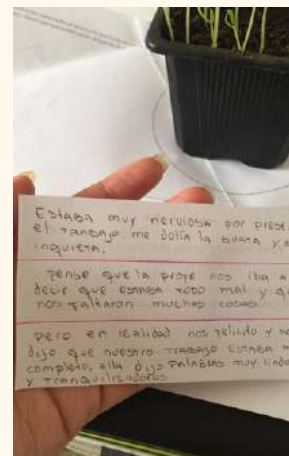 Estaba muy nerviosa por prese
el trabajo me dolía la guata y e
inquieta.
Pense que la profe nos iba a
decir que estaba todo mal y q
nos faltaron muchas cosas.
Pero en realidad nos felicito y no
dijo que nuestro trabajo estaba m
completo, ella dijo palabras muy linda
y tranquilizadoras